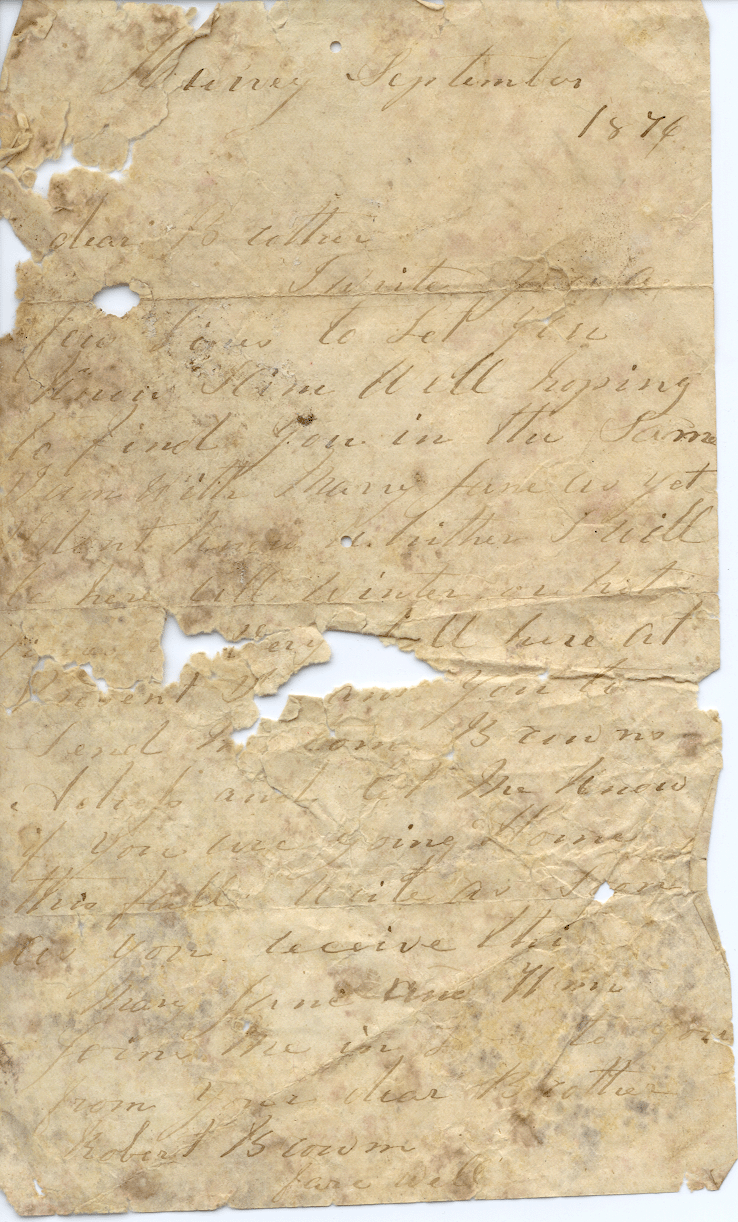 September
1876
dear Brother
I write you a
few lines to let you
know I am Well hoping
to find you in the Same
I am With Mary Jane as yet
I dont know whither I will
be here till Winter or not
very dull here at
Present I want you to
Send me Tom Browns
Adress and let Me Know
if you are going Home
this fall Write as Soon
as you receive this
Mary Jane and
Join Me in to you
from your dear Brother
Robert Brown
fare well